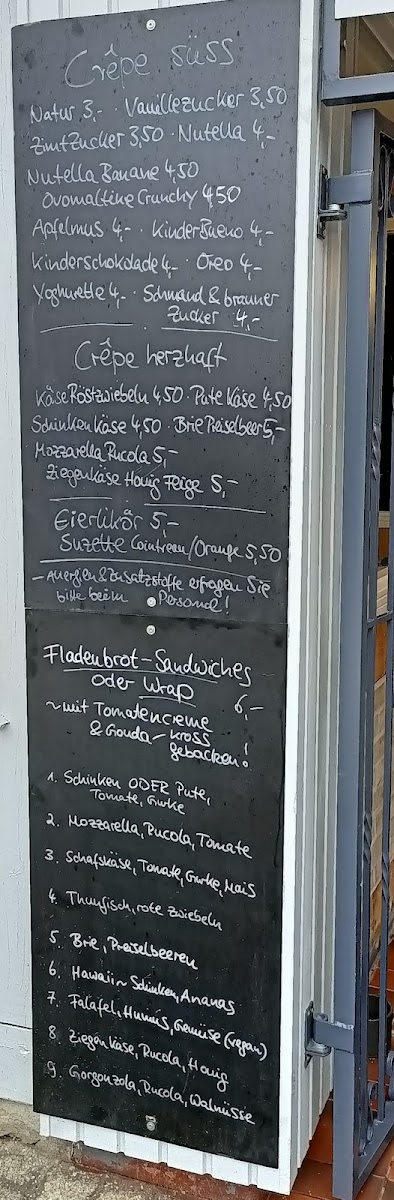 Crêpe süss
Natur 3,- · Vanillezucker 3,50
Zimtzucker 3,50 · Nutella 4,-
Nutella Banane 4,50
Ovomaltine Crunchy 4,50
Apfelmus 4,- · KinderBueno 4,-
Kinderschokolade 4,- · Oreo 4,-
Yoghurette 4,- · Schmand & brauner
Zucker 4,-
Crêpe herzhaft
Käse Röstzwiebeln 4,50 · Pute Käse 4,50
Schinken Käse 4,50 · Brie Preiselbeer 5,-
Mozzarella Rucola 5,-
Ziegenkäse Honig Feige 5,-
Eierlikör 5,-
Suzette Cointreau/Orange 5,50
- Allergien & Zusatzstoffe erfragen Sie
bitte beim Personal!
Fladenbrot-Sandwiches
oder Wrap 6,-
~mit Tomatencreme
& Gouda - kross
gebacken!
1. Schinken ODER Pute,
Tomate, Gurke
2. Mozzarella, Rucola, Tomate
3. Schafskäse, Tomate, Gurke, Mais
4. Thunfisch, rote Zwiebeln
5. Brie, Preiselbeeren
6. Hawaii ~ Schinken, Ananas
7. Falafel, Humus, Gemüse (vegan)
8. Ziegenkäse, Rucola, Honig
9. Gorgonzola, Rucola, Walnüsse